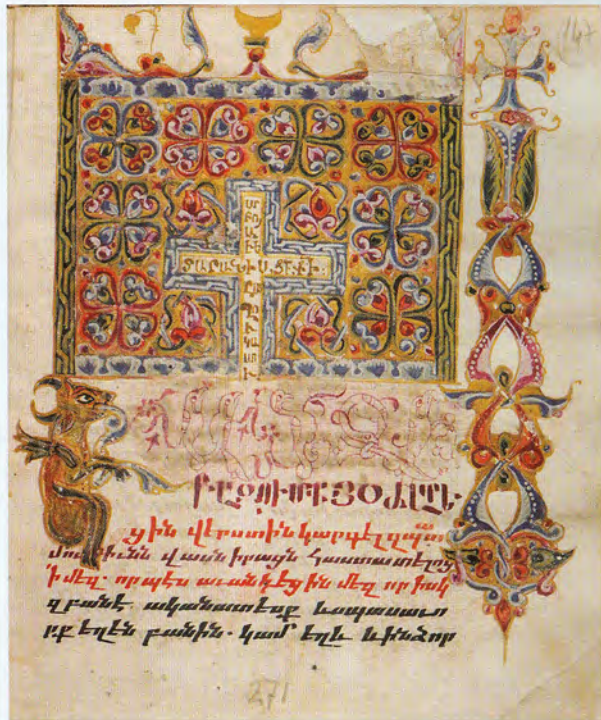 147
ԲԱԶՈՒՄՔ ՅՕԺԱՐԵ
ցին վերստին կարգել զպատ
մութիւնն վասն իրացն հաստատելոց
ի մեզ. որպէս աւանդեցին մեզ որ իսկ
զբանէ. ականատեսք և սպասաւո
րք եղեն բանին. կամ եղև և ինձ որ
271